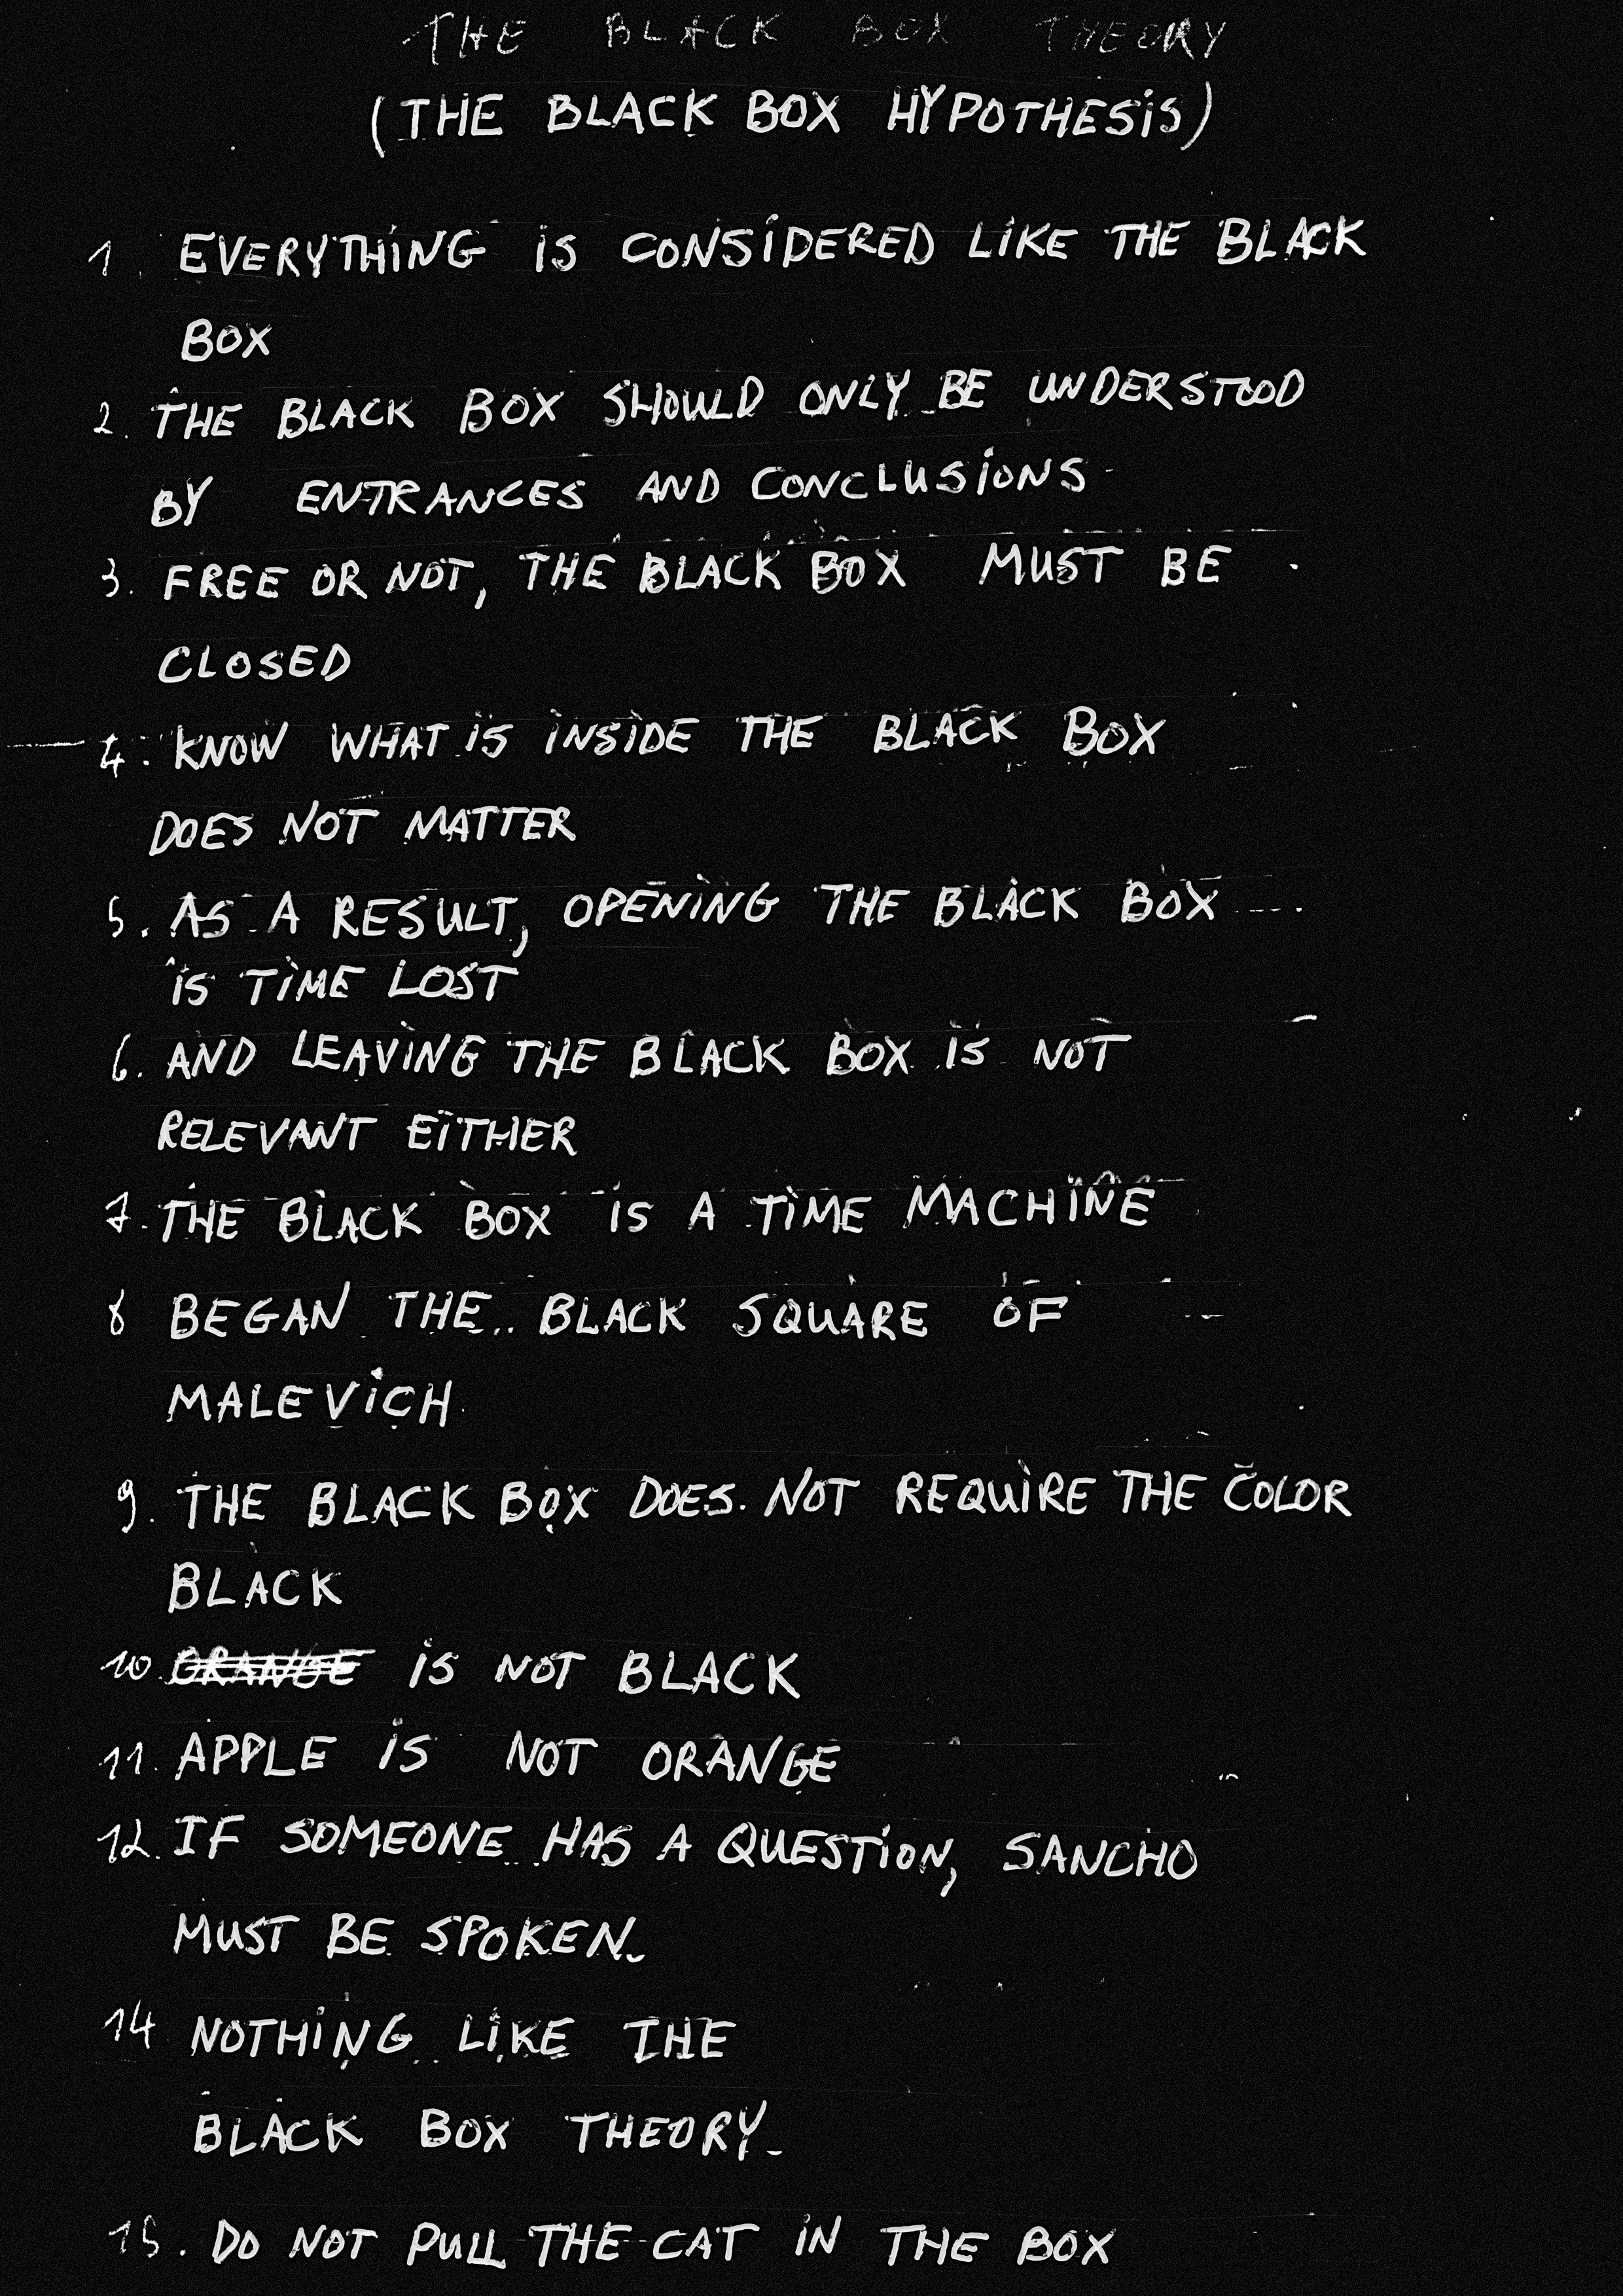 THE BLACK BOX THEORY
(THE BLACK BOX HYPOTHESIS)
1. EVERYTHING IS CONSIDERED LIKE THE BLACK
BOX
2. THE BLACK BOX SHOULD ONLY BE UNDERSTOOD
BY ENTRANCES AND CONCLUSIONS
3. FREE OR NOT, THE BLACK BOX MUST BE
CLOSED
4. KNOW WHAT IS INSIDE THE BLACK BOX
DOES NOT MATTER
5. AS A RESULT, OPENING THE BLACK BOX
IS TIME LOST
6. AND LEAVING THE BLACK BOX IS NOT
RELEVANT EITHER
7. THE BLACK BOX IS A TIME MACHINE
8 BEGAN THE BLACK SQUARE OF
MALEVICH
9. THE BLACK BOX DOES NOT REQUIRE THE COLOR
BLACK
10. ORANGE IS NOT BLACK
11. APPLE IS NOT ORANGE
12. IF SOMEONE HAS A QUESTION, SANCHO
MUST BE SPOKEN.
14 NOTHING LIKE THE
BLACK BOX THEORY.
15. DO NOT PULL THE CAT IN THE BOX